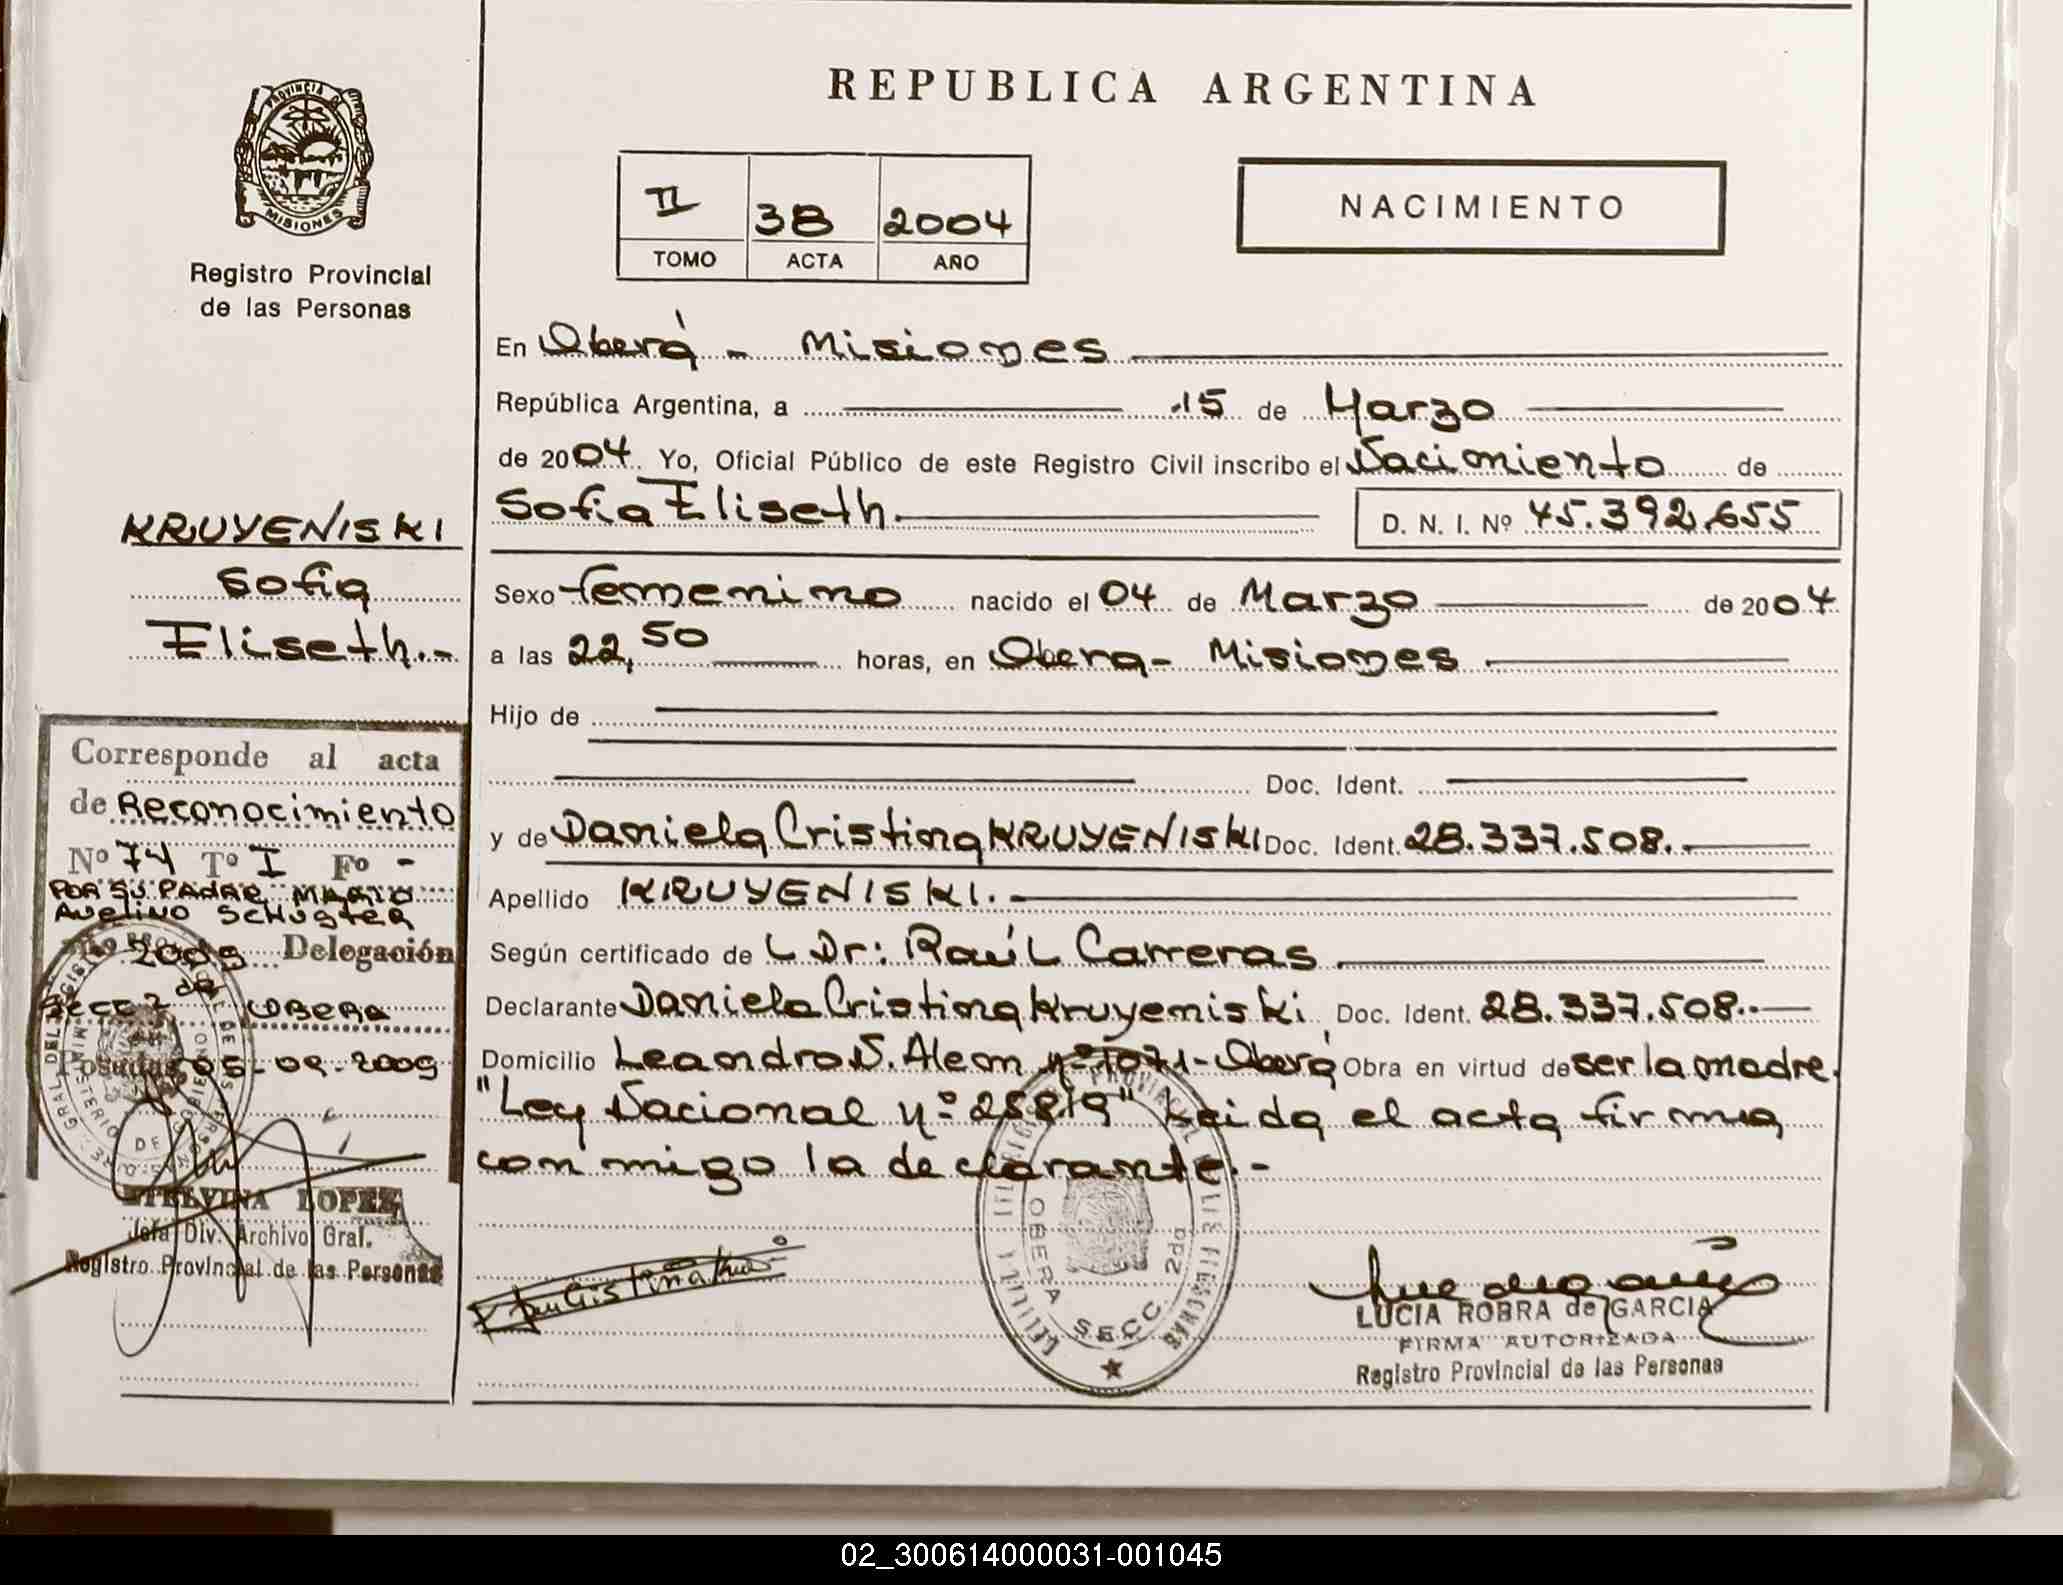 PROVINCIA DE
MISIONES
Registro Provincial
de las Personas
KRUYENISKI
Sofia
Eliseth.-
Corresponde al acta
de Reconocimiento
Nº 74 Tº I Fº -
POR SU PADRE MARIO
AVELINO SCHUSTER
2009 Delegación
SECC 2da OBERA
Posadas 05-09-2009
LOPEZ
Jefa Div. Archivo Gral.
Registro Provincial de las Personas
REPUBLICA ARGENTINA
II 38 2004
TOMO ACTA AÑO
NACIMIENTO
En Oberá - Misiones
República Argentina, a 15 de Marzo
de 2004 Yo, Oficial Público de este Registro Civil inscribo el Nacimiento de
Sofia Eliseth.
D. N. I. Nº 45.392.655
Sexo femenino nacido el 04 de Marzo de 2004
a las 22,50 horas, en Obera - Misiones
Hijo de
Doc. Ident.
y de Daniela Cristina KRUYENISKI Doc. Ident. 28.337.508.-
Apellido KRUYENISKI.-
Según certificado de Dr: Raúl Carreras
Declarante Daniela Cristina Kruyeniski, Doc. Ident. 28.337.508.-
Domicilio Leandro N. Alem nº 1071 - Oberá Obra en virtud de ser la madre.
"Ley Nacional nº 25819" Leida el acta firma
con migo la declarante.-
OBERA SECC. 2da
LUCIA ROBRA de GARCIA
FIRMA AUTORIZADA
Registro Provincial de las Personas
02_300614000031-001045